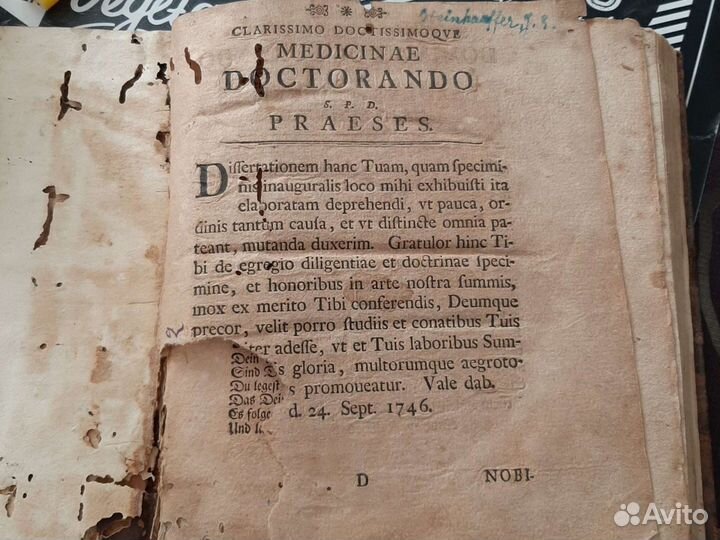 Steinhaeffer, J. S.
CLARISSIMO DOCTISSIMOQVE
MEDICINAE
DOCTORANDO
S. P. D.
PRAESES.
Dissertationem hanc Tuam, quam specimi-
nis inauguralis loco mihi exhibuisti ita
elaboratam deprehendi, vt pauca, or-
dinis tantum causa, et vt distincte omnia pa-
teant, mutanda duxerim. Gratulor hinc Ti-
bi de egregio diligentiae et doctrinae speci-
mine, et honoribus in arte nostra summis,
mox ex merito Tibi conferendis, Deumque
precor, velit porro studiis et conatibus Tuis
iter adesse, vt et Tuis laboribus Sum-
is gloria, multorumque aegroto-
s promoueatur. Vale dab.
d. 24. Sept. 1746.
Dein
Sind
Du legest
Das Dei
Es folge
Und
D NOBI-
Avito